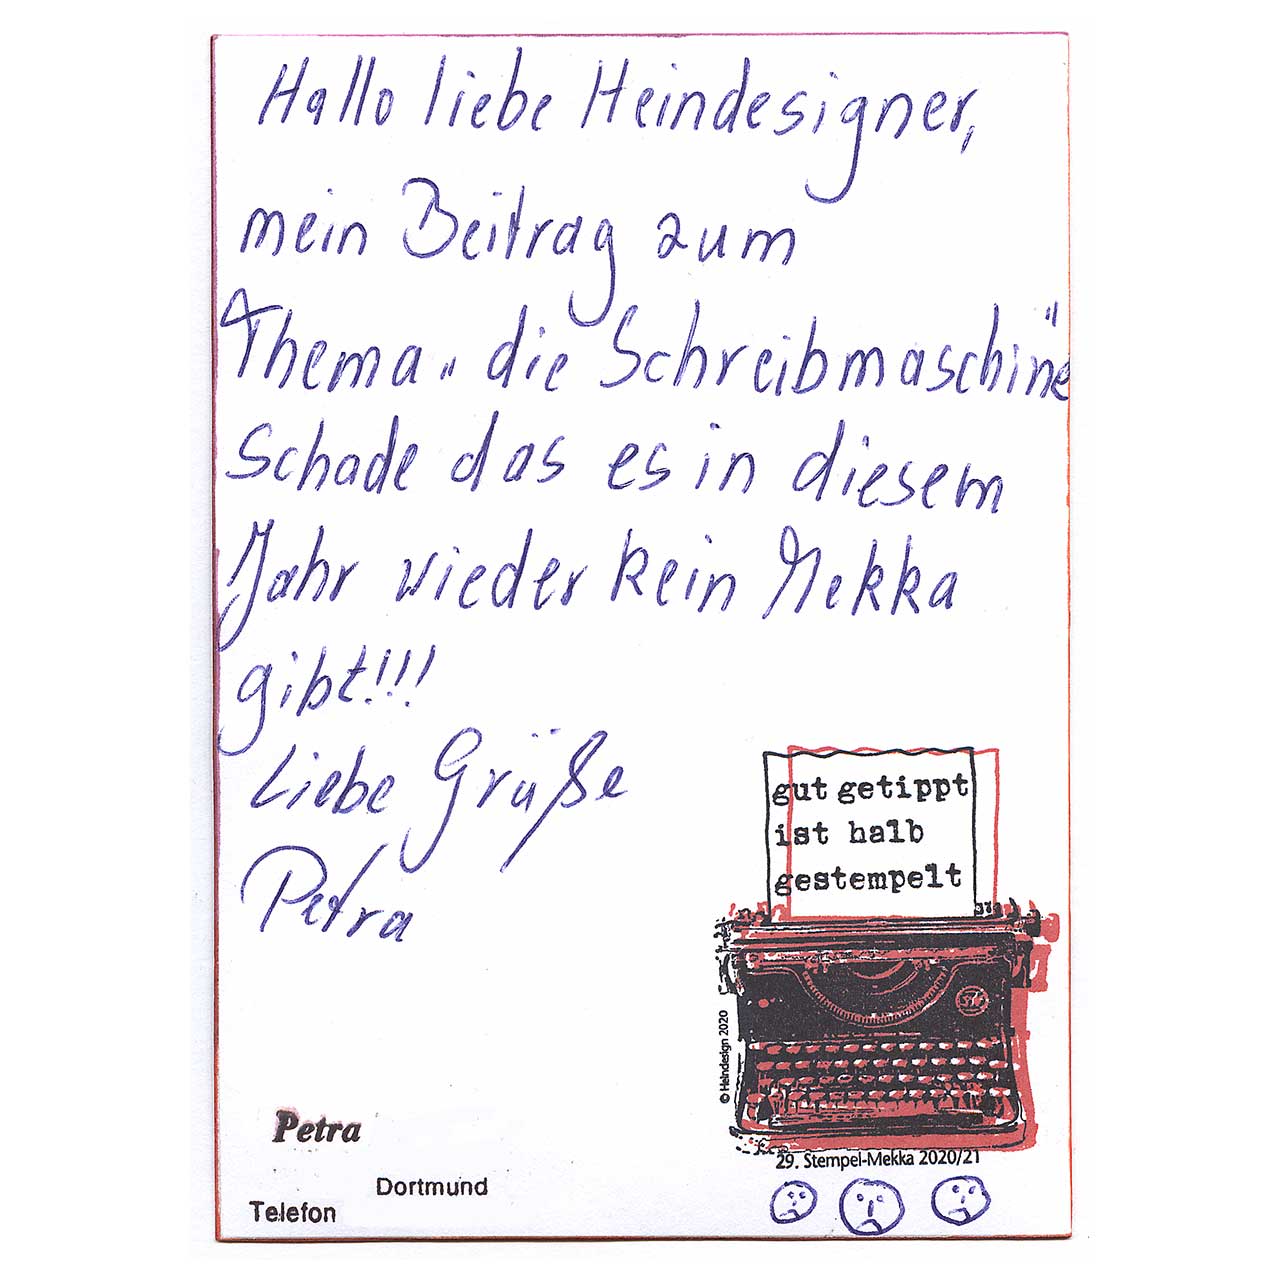 Hallo liebe Heindesigner,
mein Beitrag zum
Thema „die Schreibmaschine“
Schade das es in diesem
Jahr wieder kein Mekka
gibt!!!
Liebe Grüße
Petra
gut getippt
ist halb
gestempelt
© Heindesign 2020
29. Stempel-Mekka 2020/21
Petra
Dortmund
Telefon